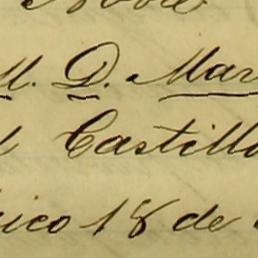 M. D. Mar
Castillo
ico 18 de